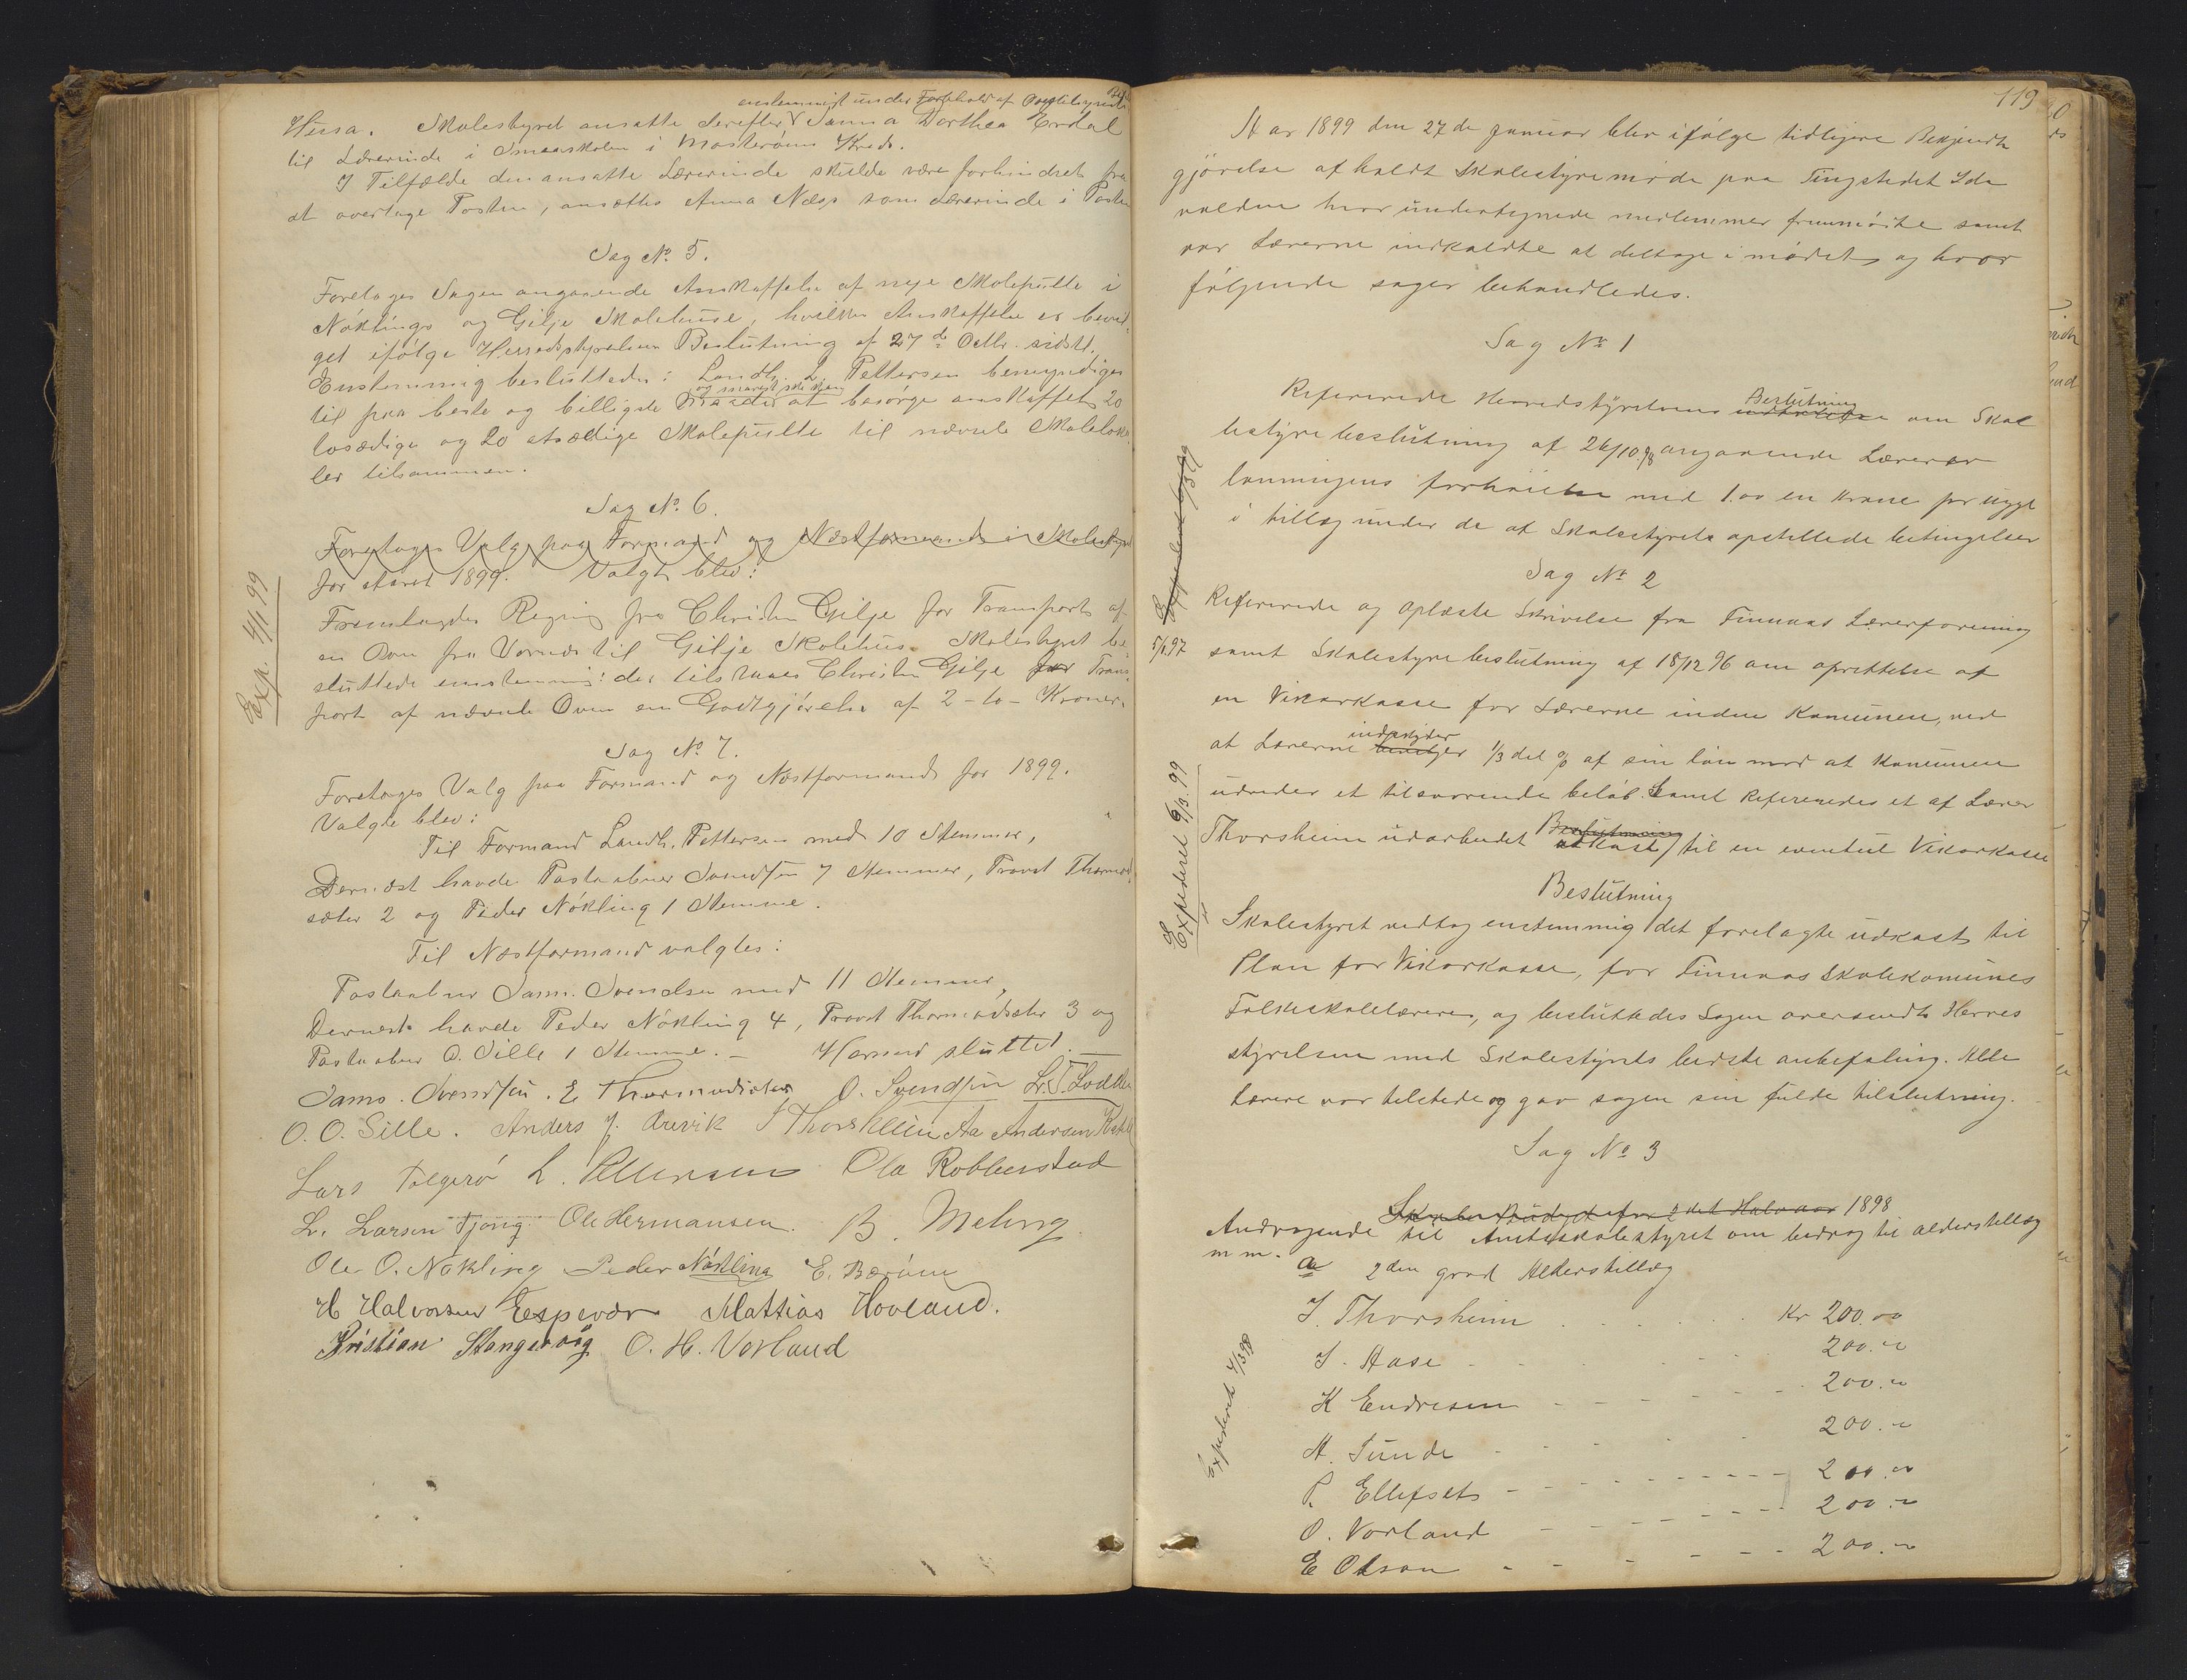 enstemmigt under Forbehold af
Hussa. Skolestyret ansatte derefter Sanna Dorthea Erdal
til Lærerinde i Smaaskolen i Mosterøens Kreds.
I Tilfælde den ansatte Lærerinde skulde være forhindret fra
at overtage Posten, ansættes Anna Næss som Lærerinde i Posten
Sag No. 5.
Foretoges Sagen angaaende Anskaffelse af nye Skolepulte i
Nøklings og Gilje Skolehuse, hvilken Anskaffelse er bevil-
get ifølge Herredsstyrelsens Beslutning af 27de Octbr. sidstl.
Enstemmig besluttedes: Landh. L. Pettersen bemyndiges
til paa beste og billigste Maade at besørge anskaffet 20
tosædige og 20 etsædige Skolepulte til nævnte Skoleloka-
ler tilsammen.
Sag No. 6.
Foretoges Valg paa Formand og Næstformand i Skolestyret
for Aaret 1899. Valgt blev:
Exp. 4/1 99
Fremlagdes Regning fra Christen Gilje for Transport af
en Ovn fra Vornes til Gilje Skolehus. Skolestyret be-
sluttede enstemmig: der tilstaaes Christen Gilje for Trans-
port af nævnte Ovn en Godtgjørelse af 2 - to - Kroner.
Sag No. 7.
Foretoges Valg paa Formand og Næstformand for 1899.
Valgte blev:
Til Formand Landh. Pettersen med 10 Stemmer,
Dernæst havde Postaabner Svendsen 7 Stemmer, Provst Thormod-
sæter 2 og Peder Nökling 1 Stemme.
Til Næstformand valgtes:
Postaabner Sam. Svendsen med 11 Stemmer,
Dernest havde Peder Nökling 4, Provst Thormodsæter 3 og
Postaabner O. Sille 1 Stemme. — Hermed sluttet. —
Sams. Svendsen. E Thormodsæter O. Svendsen L. T. Lodden
O. O. Sille. Anders J. Arevik J Thorsheim Aa Andersen
Lars Folgerø L. Pettersen Ola Robberstad
L. Larsen Tjong. Ole Hermansen. B. Mehug
Ole O. Nökling Peder Nökling E. Bærøen
H Halvorsen Espevær Mattias Hovland.
Kristian Stangervåg O. H. Vorland
119
Aar 1899 den 27de Januar blev ifølge tidligere Bekjendt
gjørelse afholdt Skolestyremøde paa Tingstedet Ida
volden hvor undertegnede medlemmer fremmøtte samt
var Lærerne indkaldte at deltage i mødet og hvor
følgende sager behandledes.
Sag No 1
Beslutning
Refererede Herredstyrelsens om Skol
lestyrebeslutning af 26/10.98 angaaende Lærer
lønningens forhøielse med 1.00 en krone pr uge
i tillæg under de af Skolestyrets opstillede betingelser
Sag No 2
Refererede og oplæste Skrivelse fra Finnaas Lærerforening
5/1.97 samt Skolestyrebeslutning af 18/12 96 om oprettelse af
en Vikarkasse for Lærerne inden Komunen, ved
indskyder
at Lærerne 1/3 del % af sin løn mod at Komunen
udreder et tilsvarende beløb. Samt Refereredes et af Lærer
Expederet 6/3. 99
Thorsheim udarbeidet Beslutning udkast til en eventuel Vikarkasse
Beslutning
Skolestyret vedtog enstemmig det forelagte udkast til
Plan for Vikarkasse, for Finnaas Skolekomunes
Folkeskolelærere, og besluttedes Sagen oversendt Herres
styrelsen med Skolestyrets bedste anbefaling. Alle
Lærere var tilstede og gav sagen sin fulde tilslutning.
Sag No 3
for 2det Halvaar 1898
Andragende til Amtsskolestyret om bedrag til alderstillæg
m m. a 2den grad Alderstillæg
Expederet 4/3 98
J. Thorsheim . . . . . Kr 200.00
J. Aase - - - - 200.00
K Endresen - - - - 200.00
A. Tunde - - - - 200.00
P. Ellefsets - - - - - 200.00
O. Vorland - - - - - 200.00
E Olson - - - - - 200.00